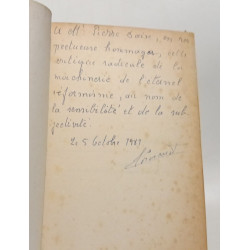 à Mr Pierre Daix, en res
pectueux hommage, cette
critique radicale de la
machinerie de l'éternel
réformisme, au nom de
la sensibilité et de la sub
jectivité.
Le 5 Octobre 1967